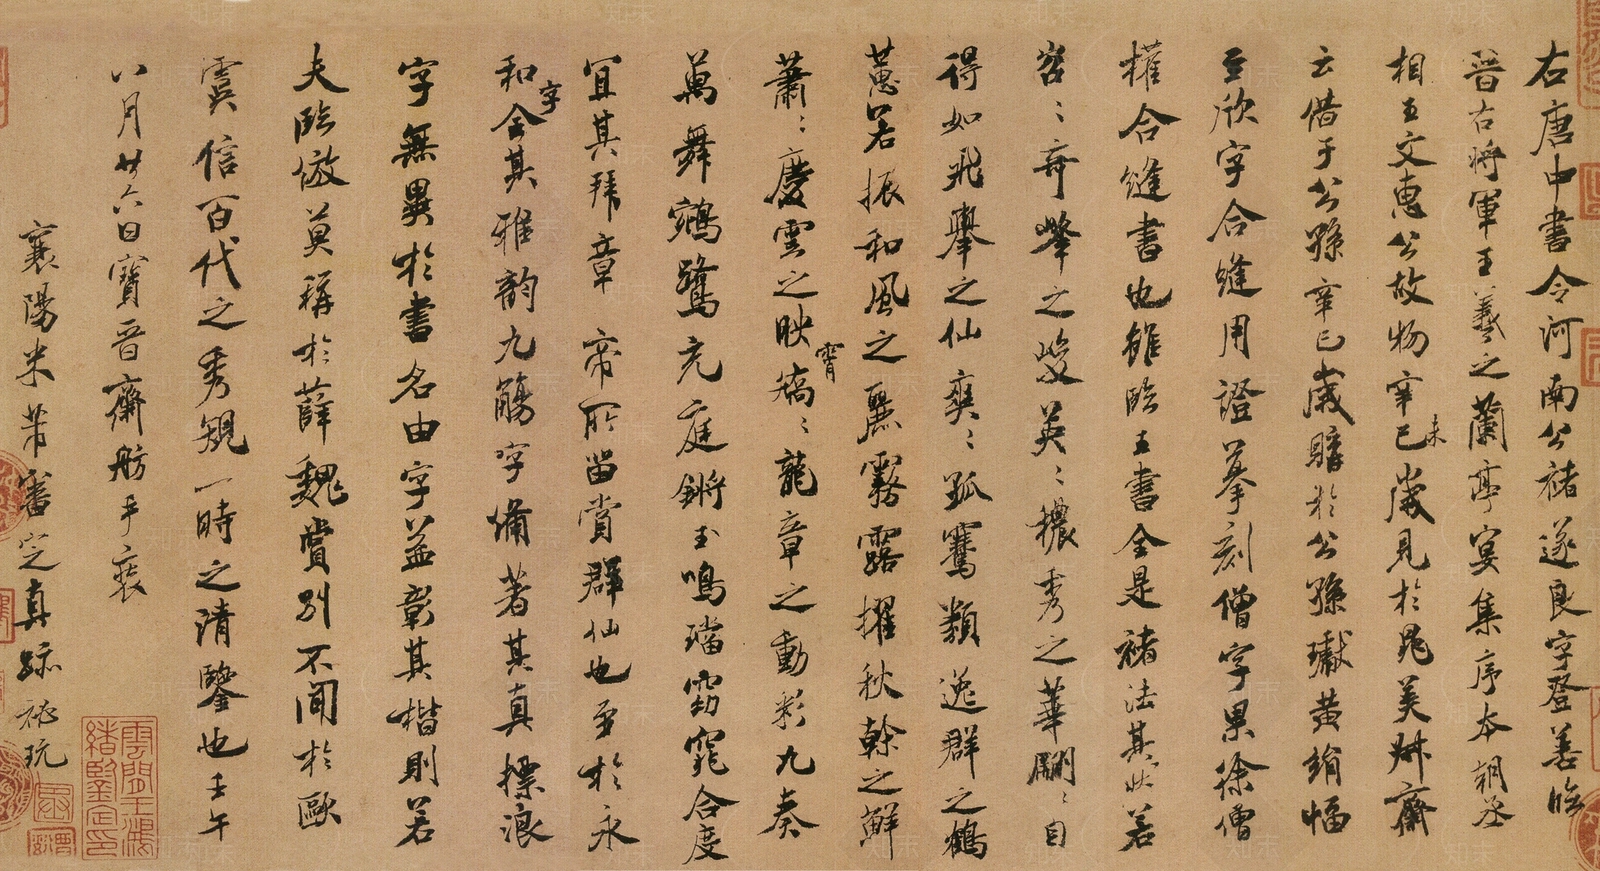 右唐中書令河南公褚遂良字登善臨
晉右將軍王羲之蘭亭宴集序本朝丞
相王文惠公故物辛巳歲見於晁美叔齋
未
云借于公孫辛巳歲購於公孫瓛黃絹幅
至欣字合縫用證摹刻僧字果徐僧
權合縫書也雖臨王書全是褚法其狀若
岩〻奇峰之峻英〻穠秀之華翩〻自
得如飛舉之仙爽〻孤騫類逸群之鶴
蕙若振和風之麗霧露擢秋幹之鮮
蕭〻慶雲之映矞〻龍章之動彩九奏
霄
萬舞鵷鷺充庭鏘玉鳴璫窈窕合度
宜其拜章帝所留賞群仙也至於永
和全其雅韵九觴字備著其真標浪
字
字無異於書名由字益彰其楷則若
夫臨倣莫稱於薛魏賞別不聞於歐
虞信百代之秀規一時之清鑒也壬午
八月廿六日寶晉齋舫手裝
襄陽米芾審定真跡秘玩